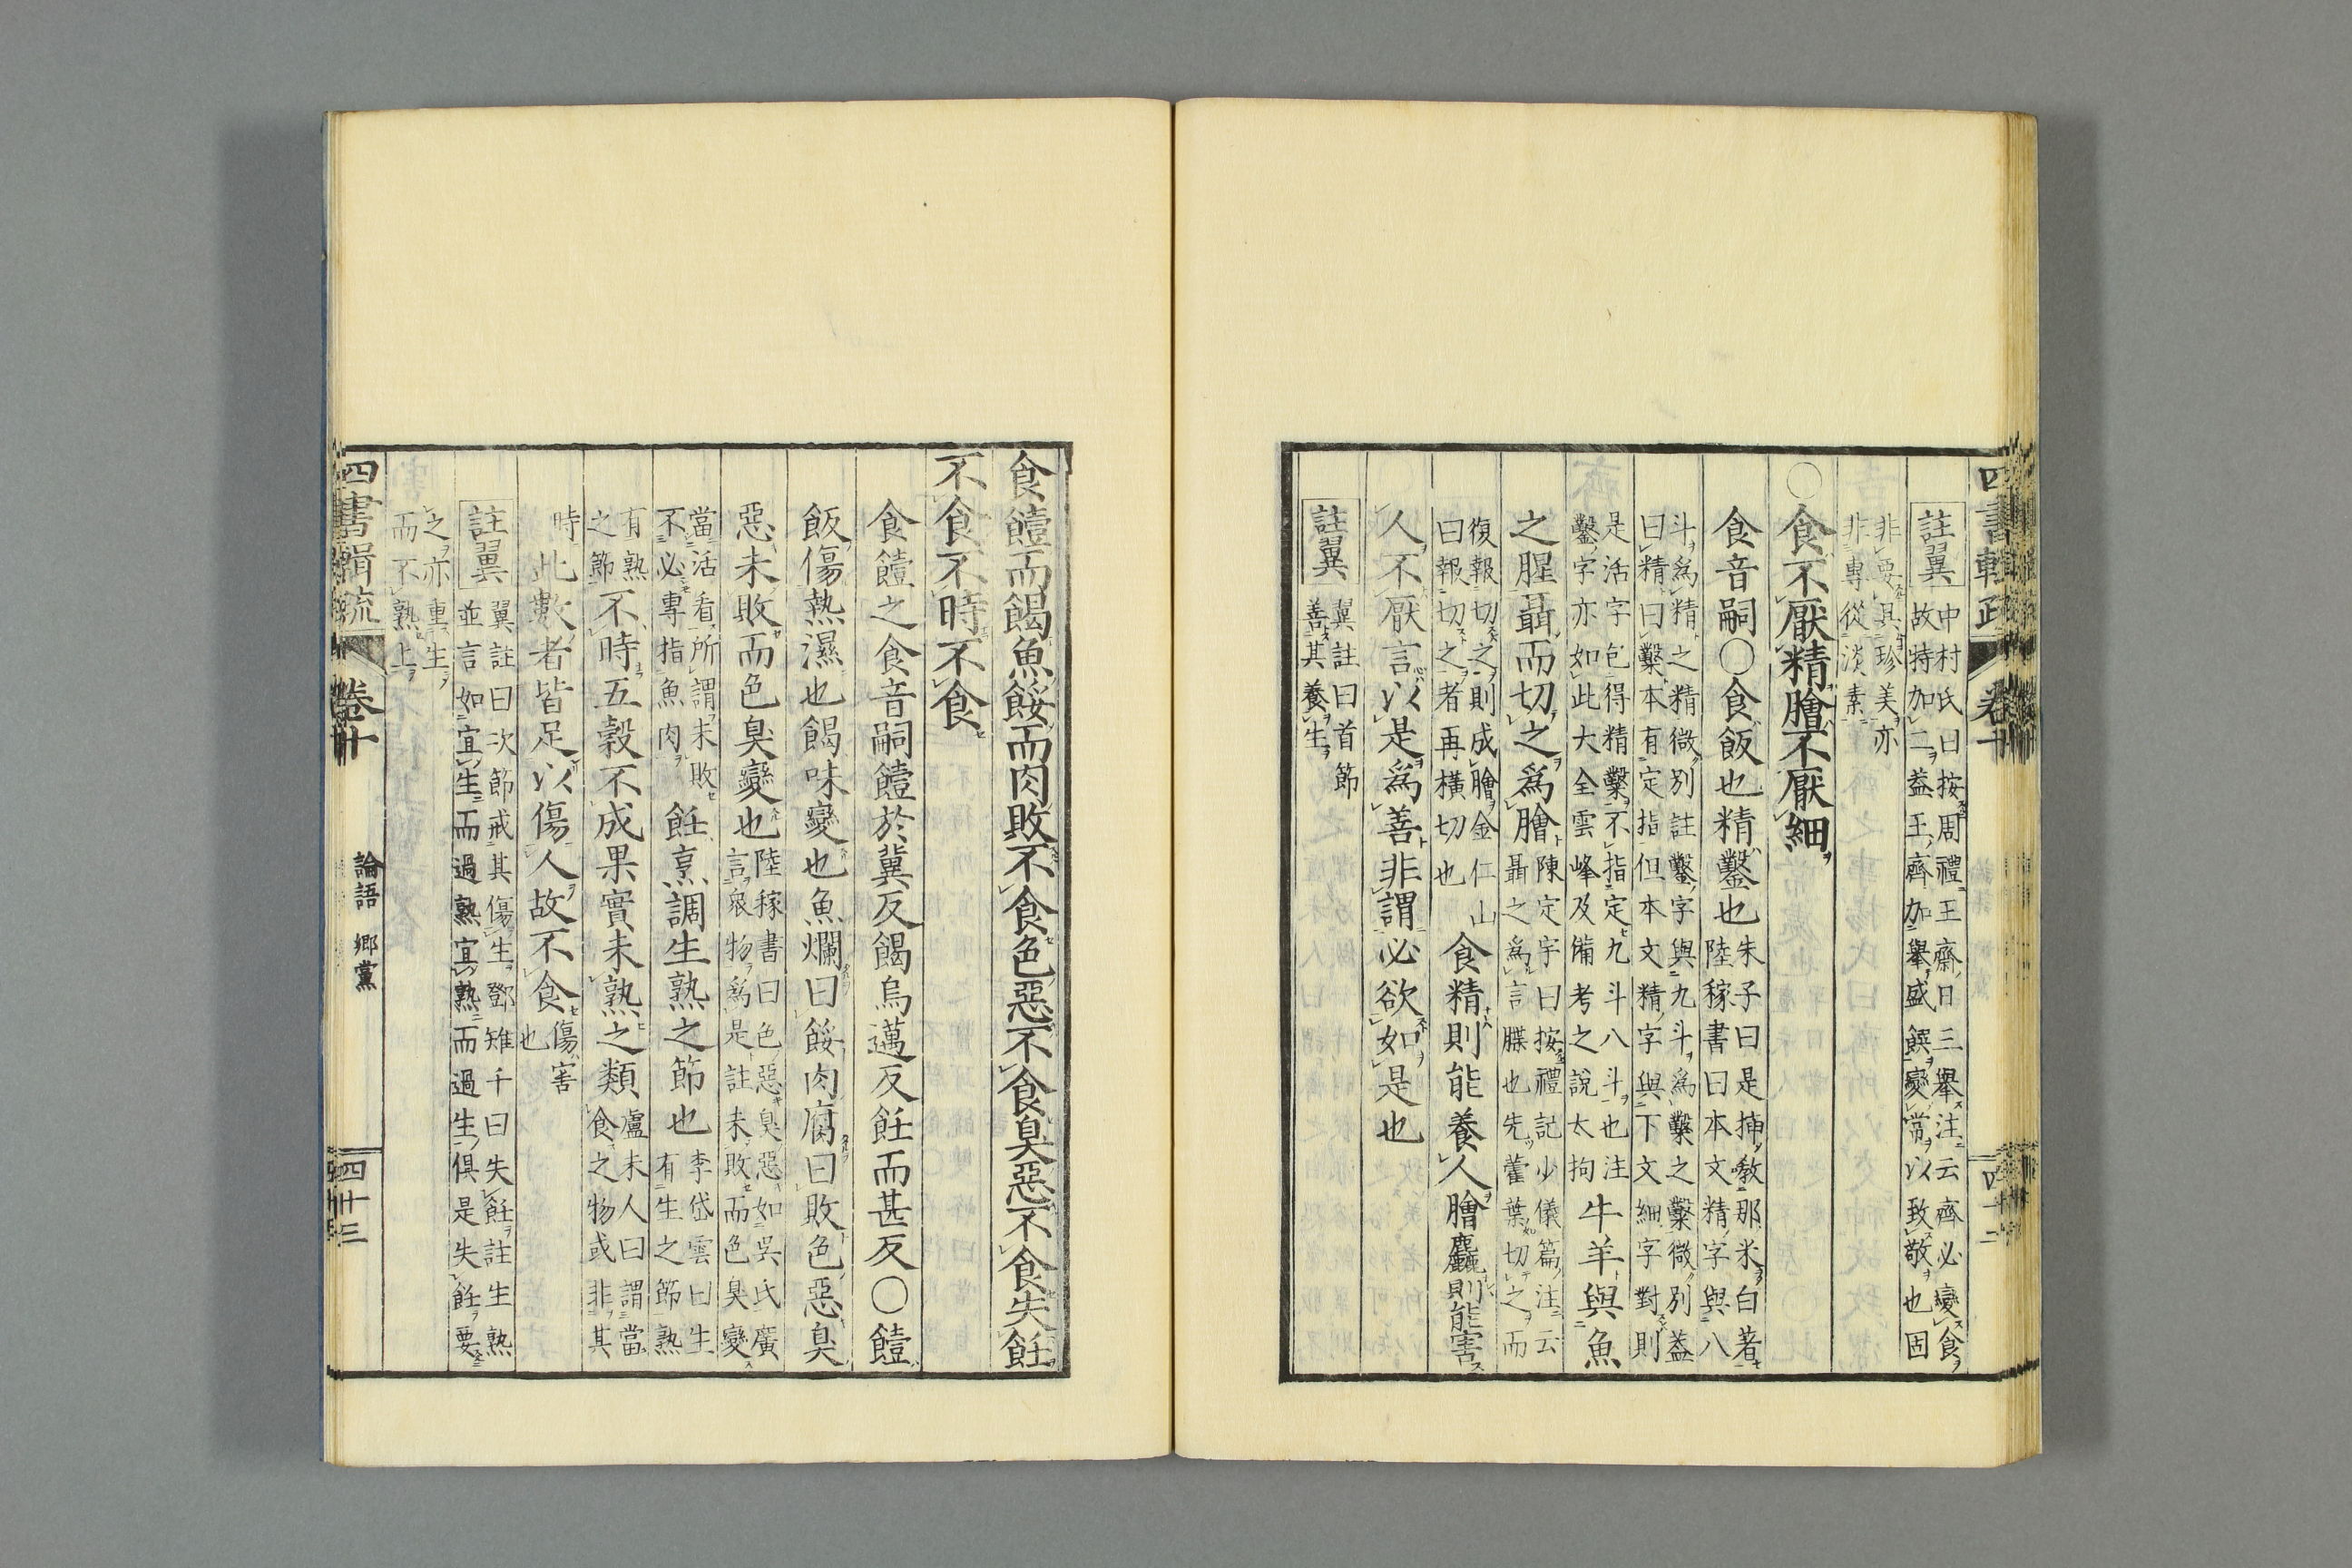 四書輯疏 卷十 四十二
註翼 中村氏曰按周禮王齋日三擧注云齊必變食
故特加二盖王齊加擧盛饌變常以致敬也固
非要具珍美亦
非專從淡素
○食不厭精膾不厭細
食音嗣○食飯也精鑿也 朱子曰是揷敎那米白著
陸稼書曰本文精字與八
斗爲精之精微別註鑿字與九斗爲鑿之鑿微別盖
曰精曰鑿本有定指但本文精字與下文細字對則
是活字包得精鑿不指定九斗八斗也注
鑿字亦如此大全雲峰及備考之說太拘
牛羊與魚
之腥聶而切之爲膾 陳定宇曰按禮記少儀篇注云
聶之爲言牒也先藿葉切之而
復報切之則成膾金仁山
曰報切之者再橫切也
食精則能養人膾麤則能害
人不厭言以是爲善非謂必欲如是也
註翼 翼註曰首節
善其養生
食饐而餲魚餒而肉敗不食色惡不食臭惡不食失飪
不食不時不食
食饐之食音嗣饐於冀反餲烏邁反飪而甚反○饐
飯傷熱濕也餲味變也魚爛曰餒肉腐曰敗色惡臭
惡未敗而色臭變也 陸稼書曰色惡臭惡如吳氏廣
言衆物爲是註未敗而色臭變
當活看所謂未敗
不必專指魚肉
飪烹調生熟之節也 李岱雲曰生
有生之節熟
有熟
之節
不時五穀不成果實未熟之類 盧未人曰謂當
食之物或非其
時
此數者皆足以傷人故不食 傷害
也
註翼 翼註曰次節戒其傷生鄧雉千曰失飪註生熟
並言如宜生而過熟宜熟而過生俱是失飪要
之亦重生
而不熟上
四書輯疏 卷十 論語 鄕黨 四十三